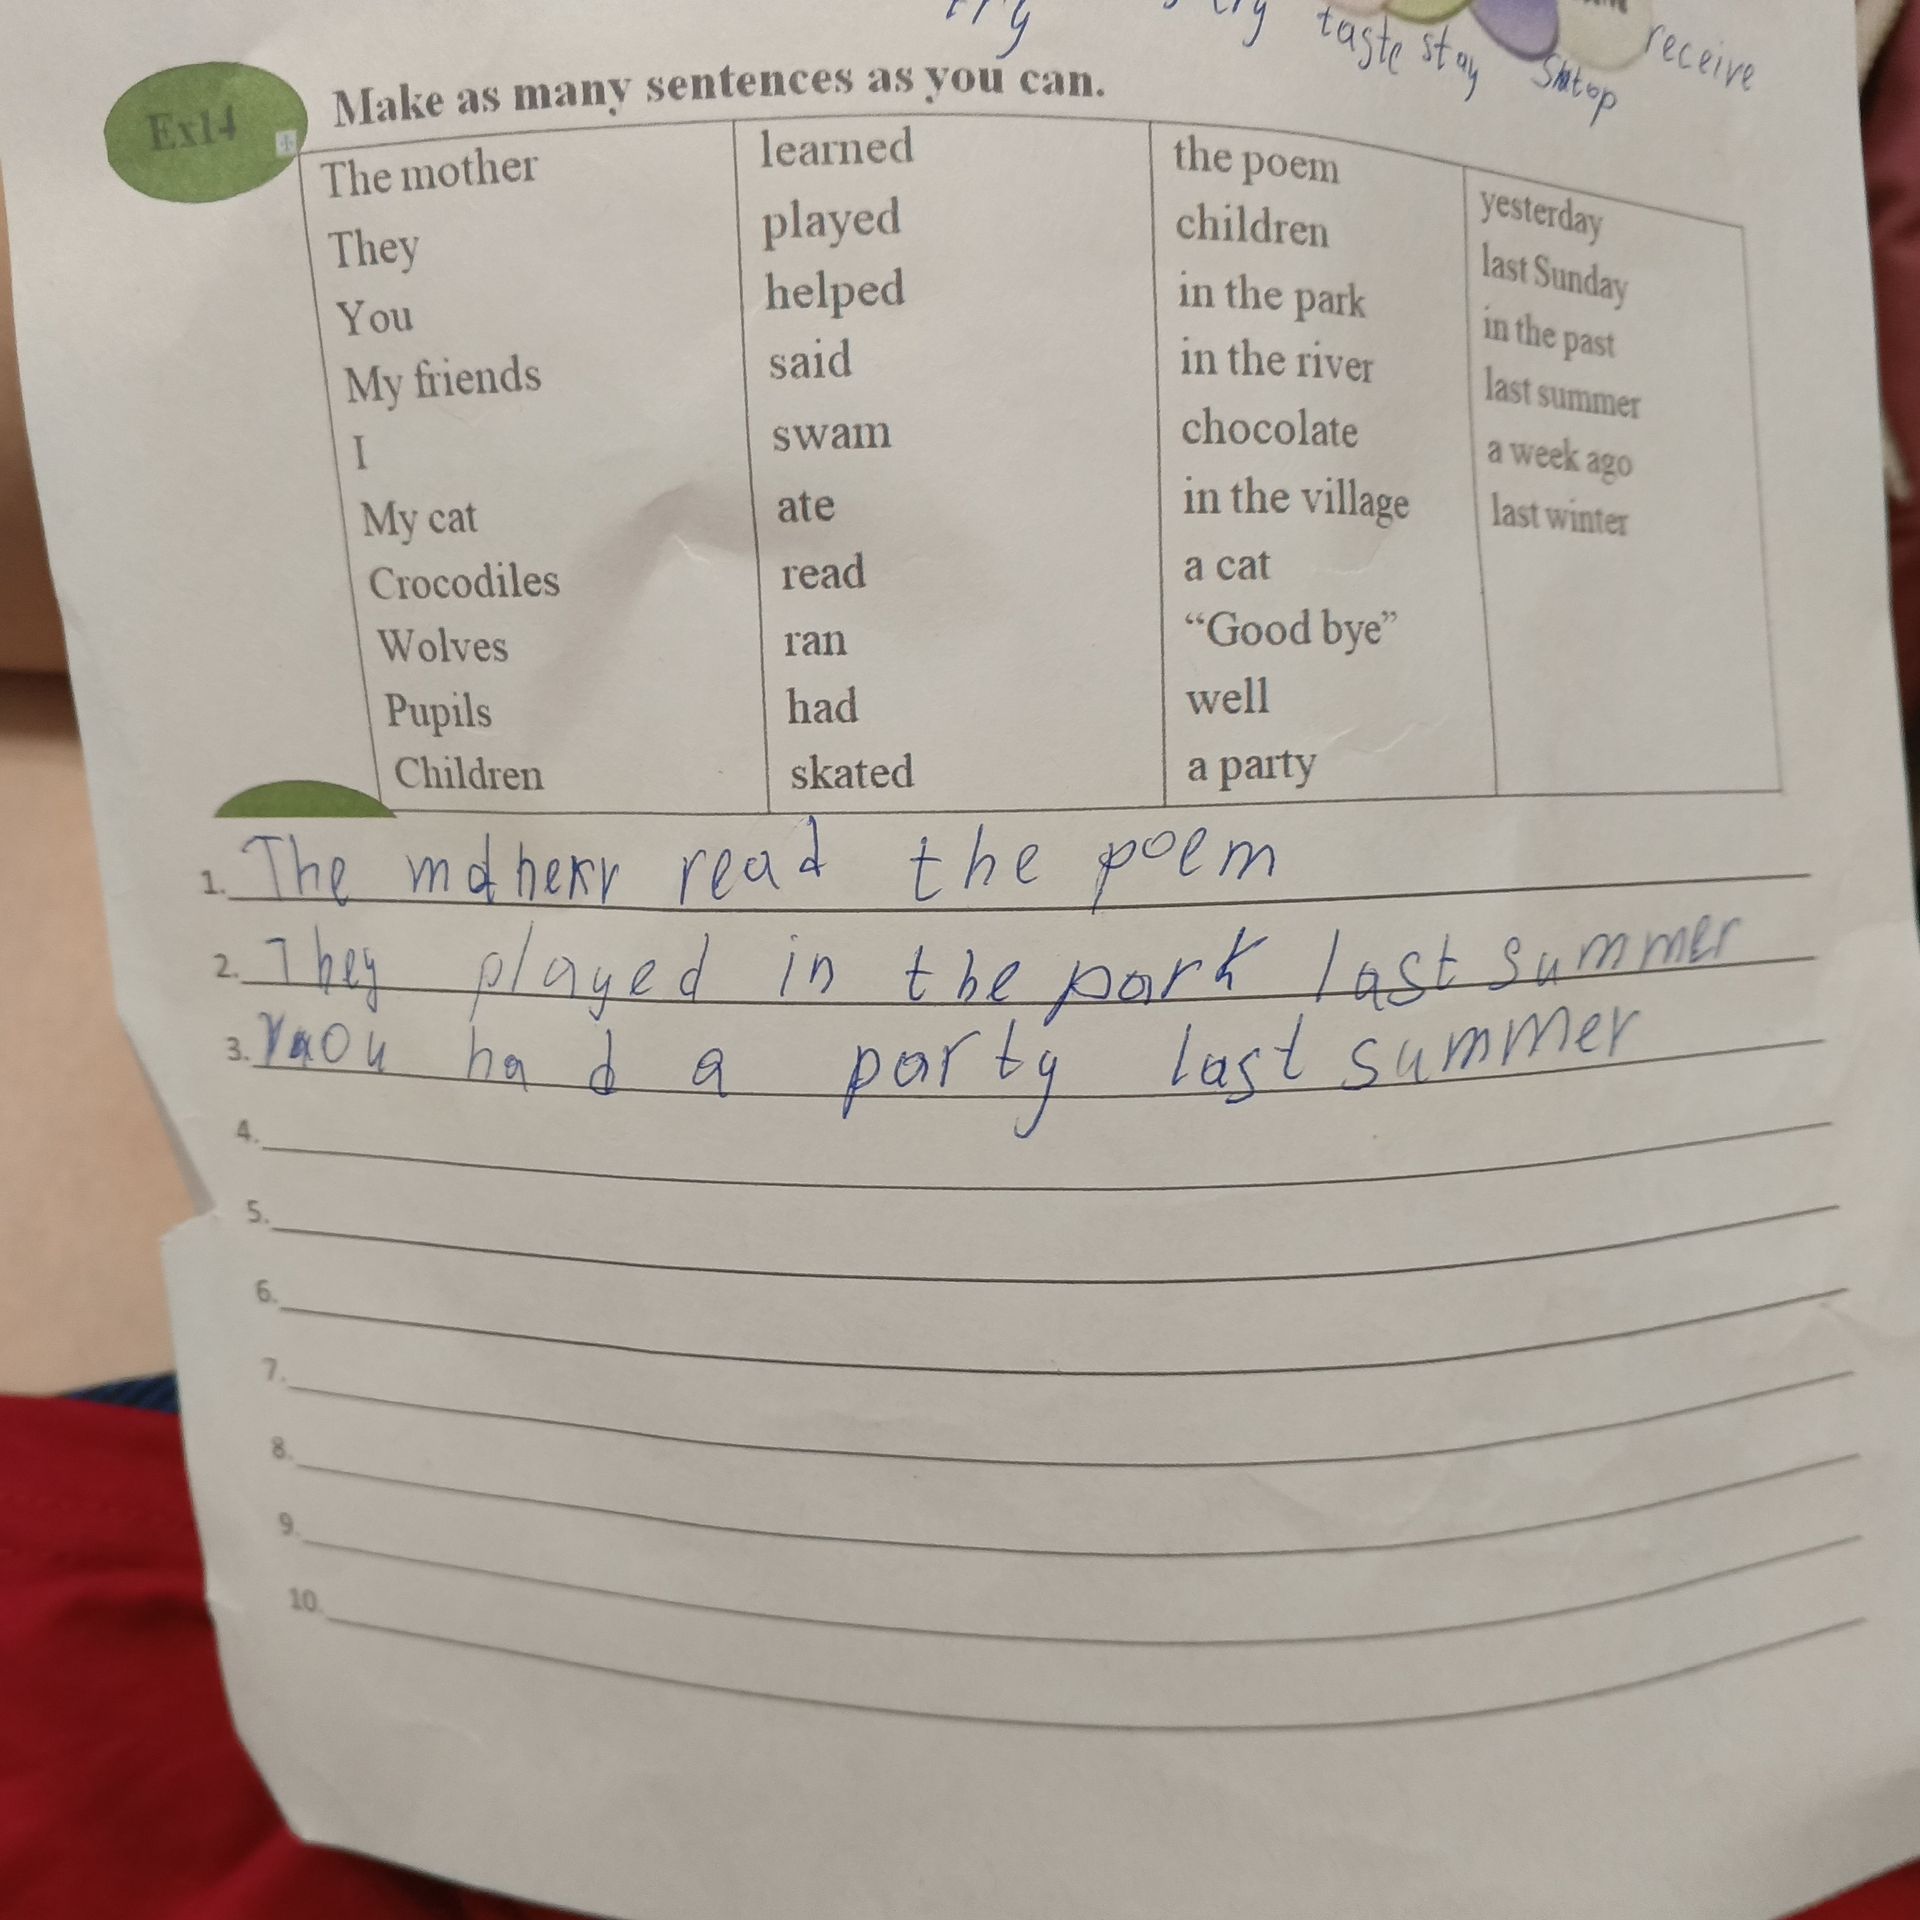 try try taste stay stop receive
Ex14 Make as many sentences as you can.
The mother learned the poem yesterday
They played children last Sunday
You helped in the park in the past
My friends said in the river last summer
I swam chocolate a week ago
My cat ate in the village last winter
Crocodiles read a cat
Wolves ran “Good bye”
Pupils had well
Children skated a party
1. The read the poem
2. They played in the park last summer
3. had a party last summer
4.
5.
6.
7.
8.
9.
10.